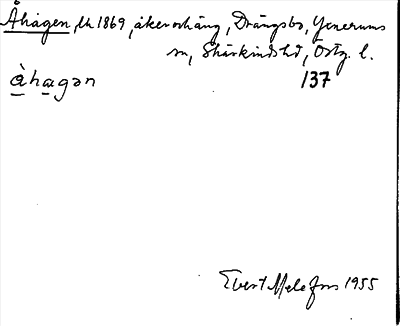 Åhagen, lh 1869, åker och äng, Drängsbo, Yxnerums
sn, Skärkinds hd, Östg. l.
å̀hagən 137
Evert Melefors 1955